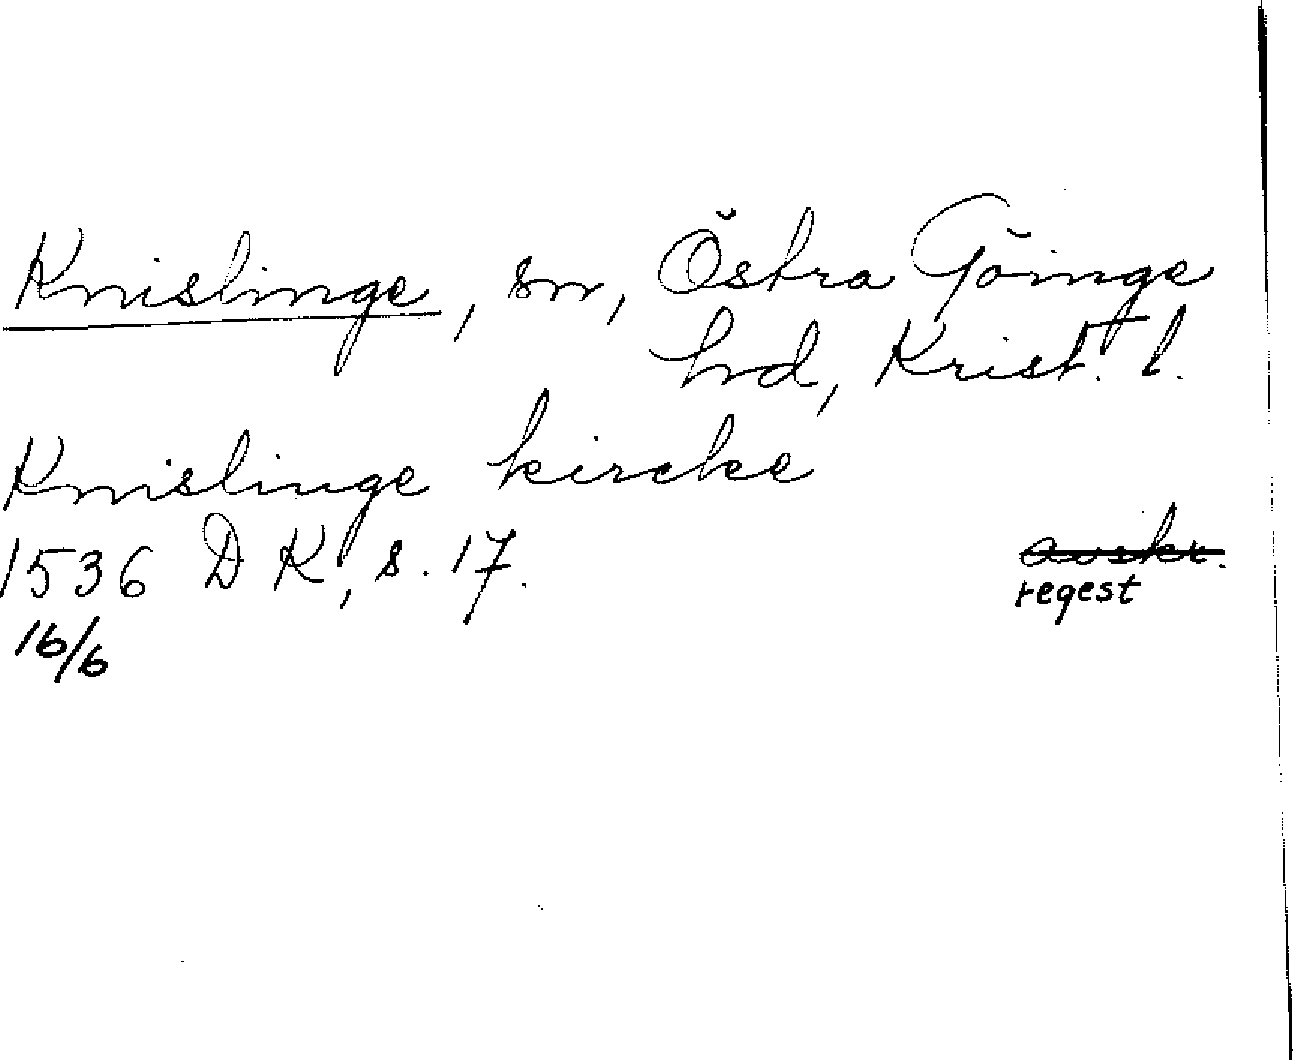 Knislinge, sn, Östra Göinge
hd, Krist. l.
Knislinge kircke
1536 DK, s. 17.
avskr.
regest
16/6